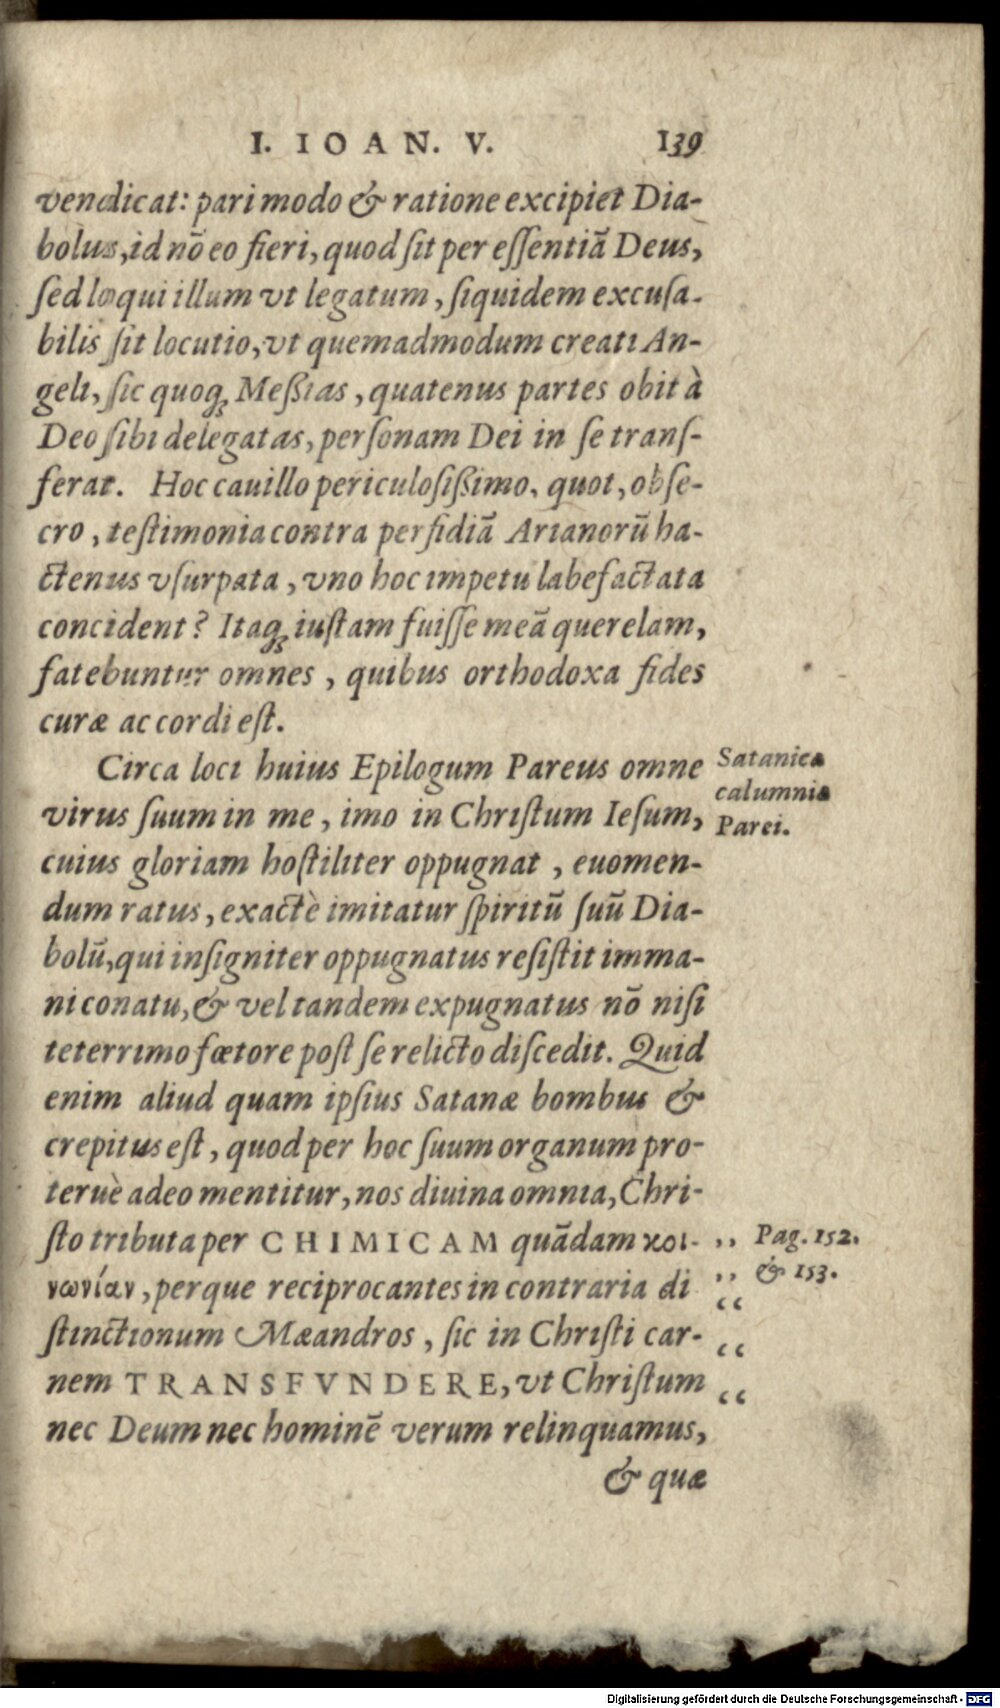 I. IOAN. V. 139
vendicat: pari modo & ratione excipiet Dia-
bolus, id nō eo fieri, quod ſit per eſſentiā Deus,
ſed loqui illum vt legatum, ſiquidem excuſa-
bilis ſit locutio, vt quemadmodum creati An-
geli, ſic quoq; Meßias, quatenus partes obit à
Deo ſibi delegatas, perſonam Dei in ſe transſ-
ferat. Hoc cauillo periculoſißimo, quot, obſe-
cro, teſtimonia contra perfidiā Arianorū ha-
ctenus vſurpata, vno hoc impetu labefactata
concident? Itaq; iuſtam fuiſſe meā querelam,
fatebuntur omnes, quibus orthodoxa fides
curæ ac cordi eſt.
Circa loci huius Epilogum Pareus omne
virus ſuum in me, imo in Chriſtum Ieſum,
cuius gloriam hoſtiliter oppugnat, euomen-
dum ratus, exactè imitatur ſpiritū ſuū Dia-
bolū, qui inſigniter oppugnatus reſiſtit imma-
ni conatu, & vel tandem expugnatus nō niſi
teterrimo fœtore poſt ſe relicto diſcedit. Quid
enim aliud quam ipſius Satanæ bombus &
crepitus eſt, quod per hoc ſuum organum pro-
teruè adeo mentitur, nos diuina omnia, Chri-
ſto tributa per CHIMICAM quādam κοι-
νωνίαν, perque reciprocantes in contraria di
ſtinctionum Mæandros, ſic in Chriſti car-
nem TRANSFVNDERE, vt Chriſtum
nec Deum nec hominē verum relinquamus,
& quæ
Satanica
calumnia
Parei.
,, Pag. 152.
,, & 153.
“
“
“
Digitalisierung gefördert durch die Deutsche Forschungsgemeinschaft - DFG